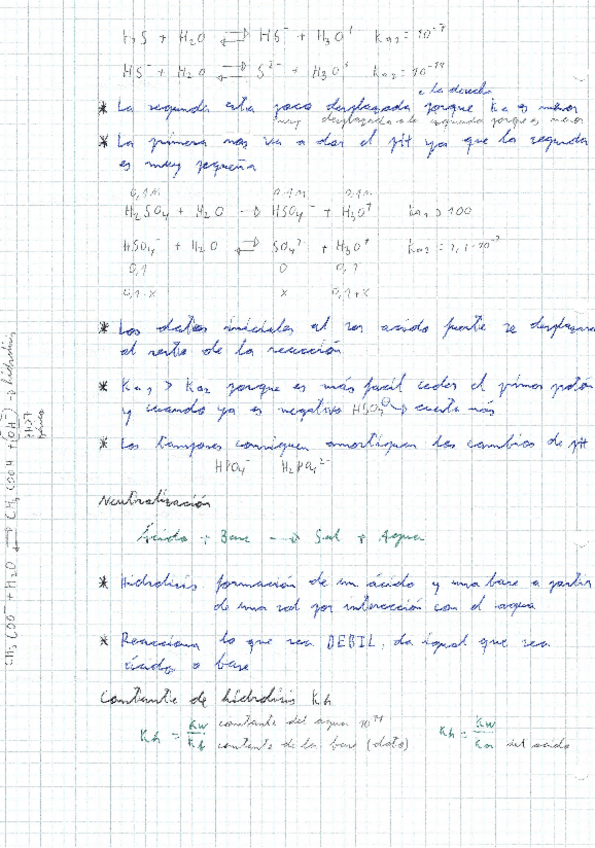 H₂S + H₂O ⇄ HS⁻ + H₃O⁺ Ka₁ = 10⁻⁷
HS⁻ + H₂O ⇄ S²⁻ + H₃O⁺ Ka₂ = 10⁻¹⁴
a la derecha
* La segunda esta poco desplazada porque Ka es menor
muy desplazada a la izquierda porque es menor
* La primera nos va a dar el pH ya que la segunda
es muy pequeña
0,1M 0,1M 0,1M
H₂SO₄ + H₂O → HSO₄⁻ + H₃O⁺ Ka₁ > 100
HSO₄⁻ + H₂O ⇄ SO₄²⁻ + H₃O⁺ Ka₂ = 1,1·10⁻²
0,1 0 0,1
0,1-x x 0,1+x
* Los datos iniciales al ser acido fuerte se desplazan
al resto de la reacción
* Ka₁ > Ka₂ porque es más facil ceder el primer protón
y cuando ya es negativo HSO₄⁻ → cuesta más
* Los tampones consiguen amortiguen los cambios de pH
HPO₄⁻ H₂PO₄²⁻
Neutralización
Ácido + Base → Sal + Agua
* Hidrolisis formación de un ácido y una base a partir
de una sal por interacción con el agua
* Reacciona lo que sea DEBIL, da igual que sea
ácido o base
Constante de hidrolisis Kh
Kh = Kw/Kb constante del agua 10⁻¹⁴
constante de la base (dato)
Kh = Kw/Ka del acido
CH₃COO⁻ + H₂O ⇄ CH₃COOH + (OH⁻) → hidrolisis